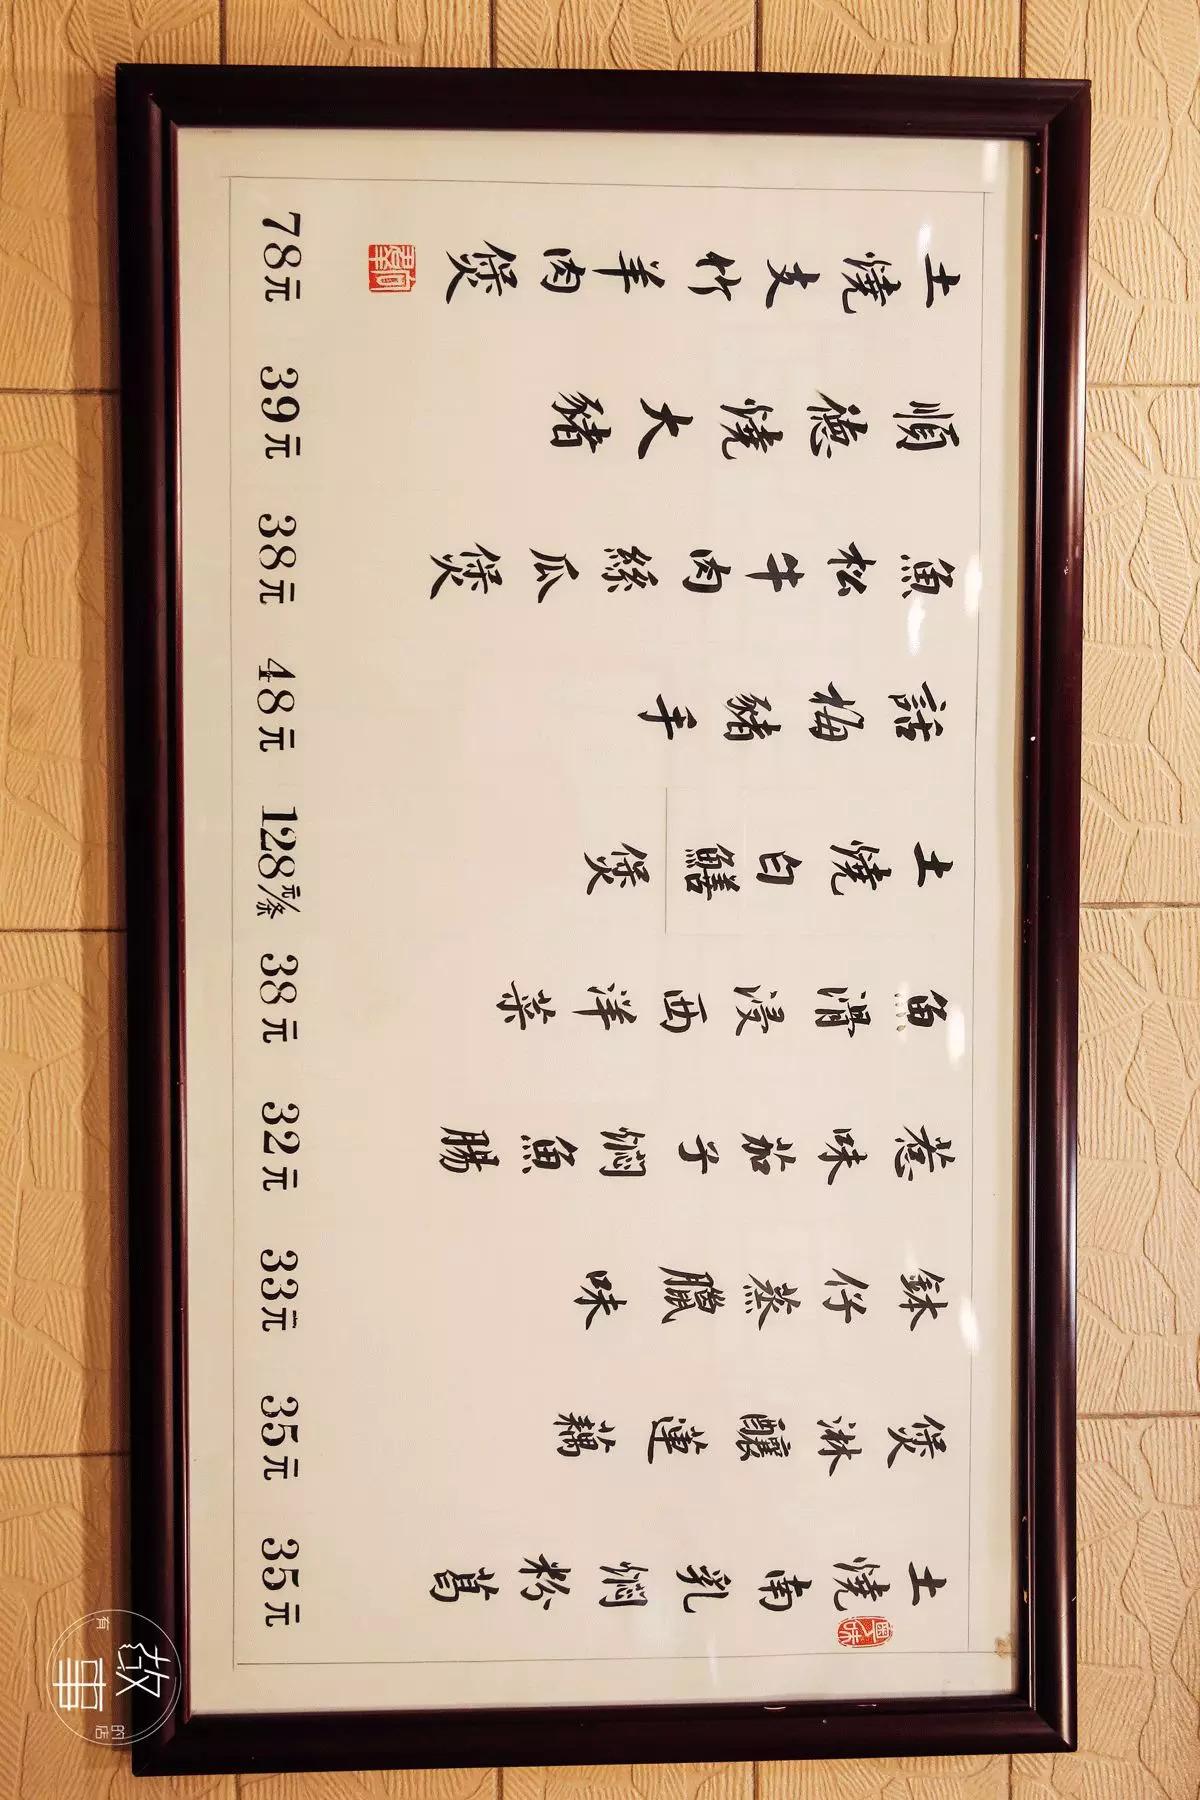 土燒南乳燜粉葛 35元
煲淋釀蓮藕 35元
鉢仔蒸臘味 33元
惹味茄子燜魚腸 32元
魚滑浸西洋菜 38元
土燒白鱔煲 128元/条
話梅豬手 48元
魚松牛肉絲瓜煲 38元
順德燒大豬 39元
土燒支竹羊肉煲 78元
有故事的店